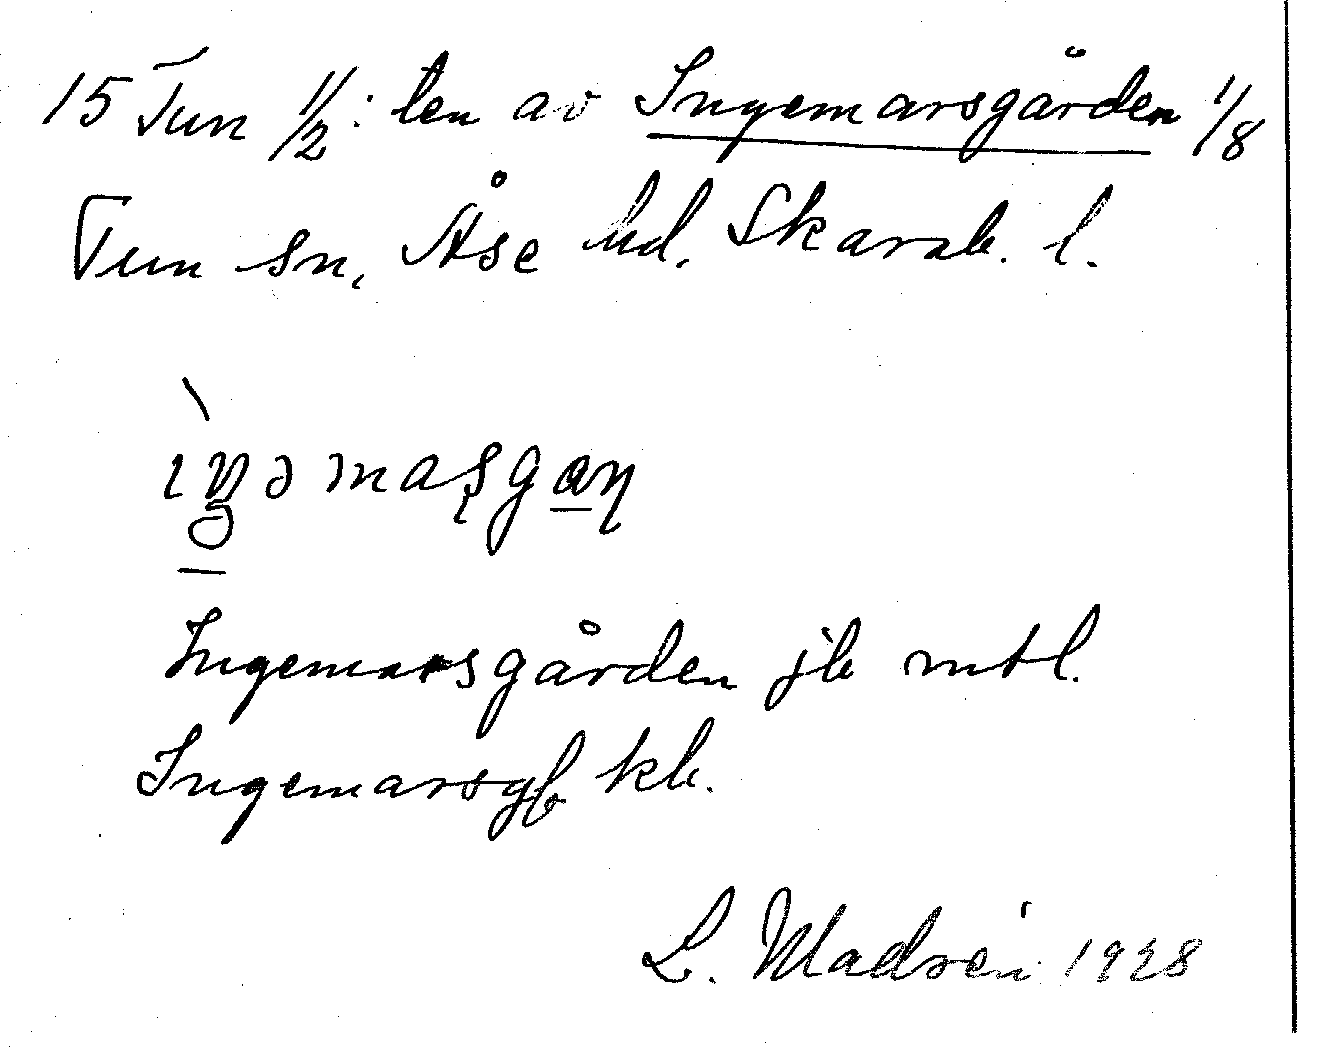 15 Tun 1/2:ten av Ingemarsgården 1/8
Tun sn, Åse hd. Skarab. l.
Ingemarsgården jb mtl.
Ingemarsg kb.
L. Madrén 1928